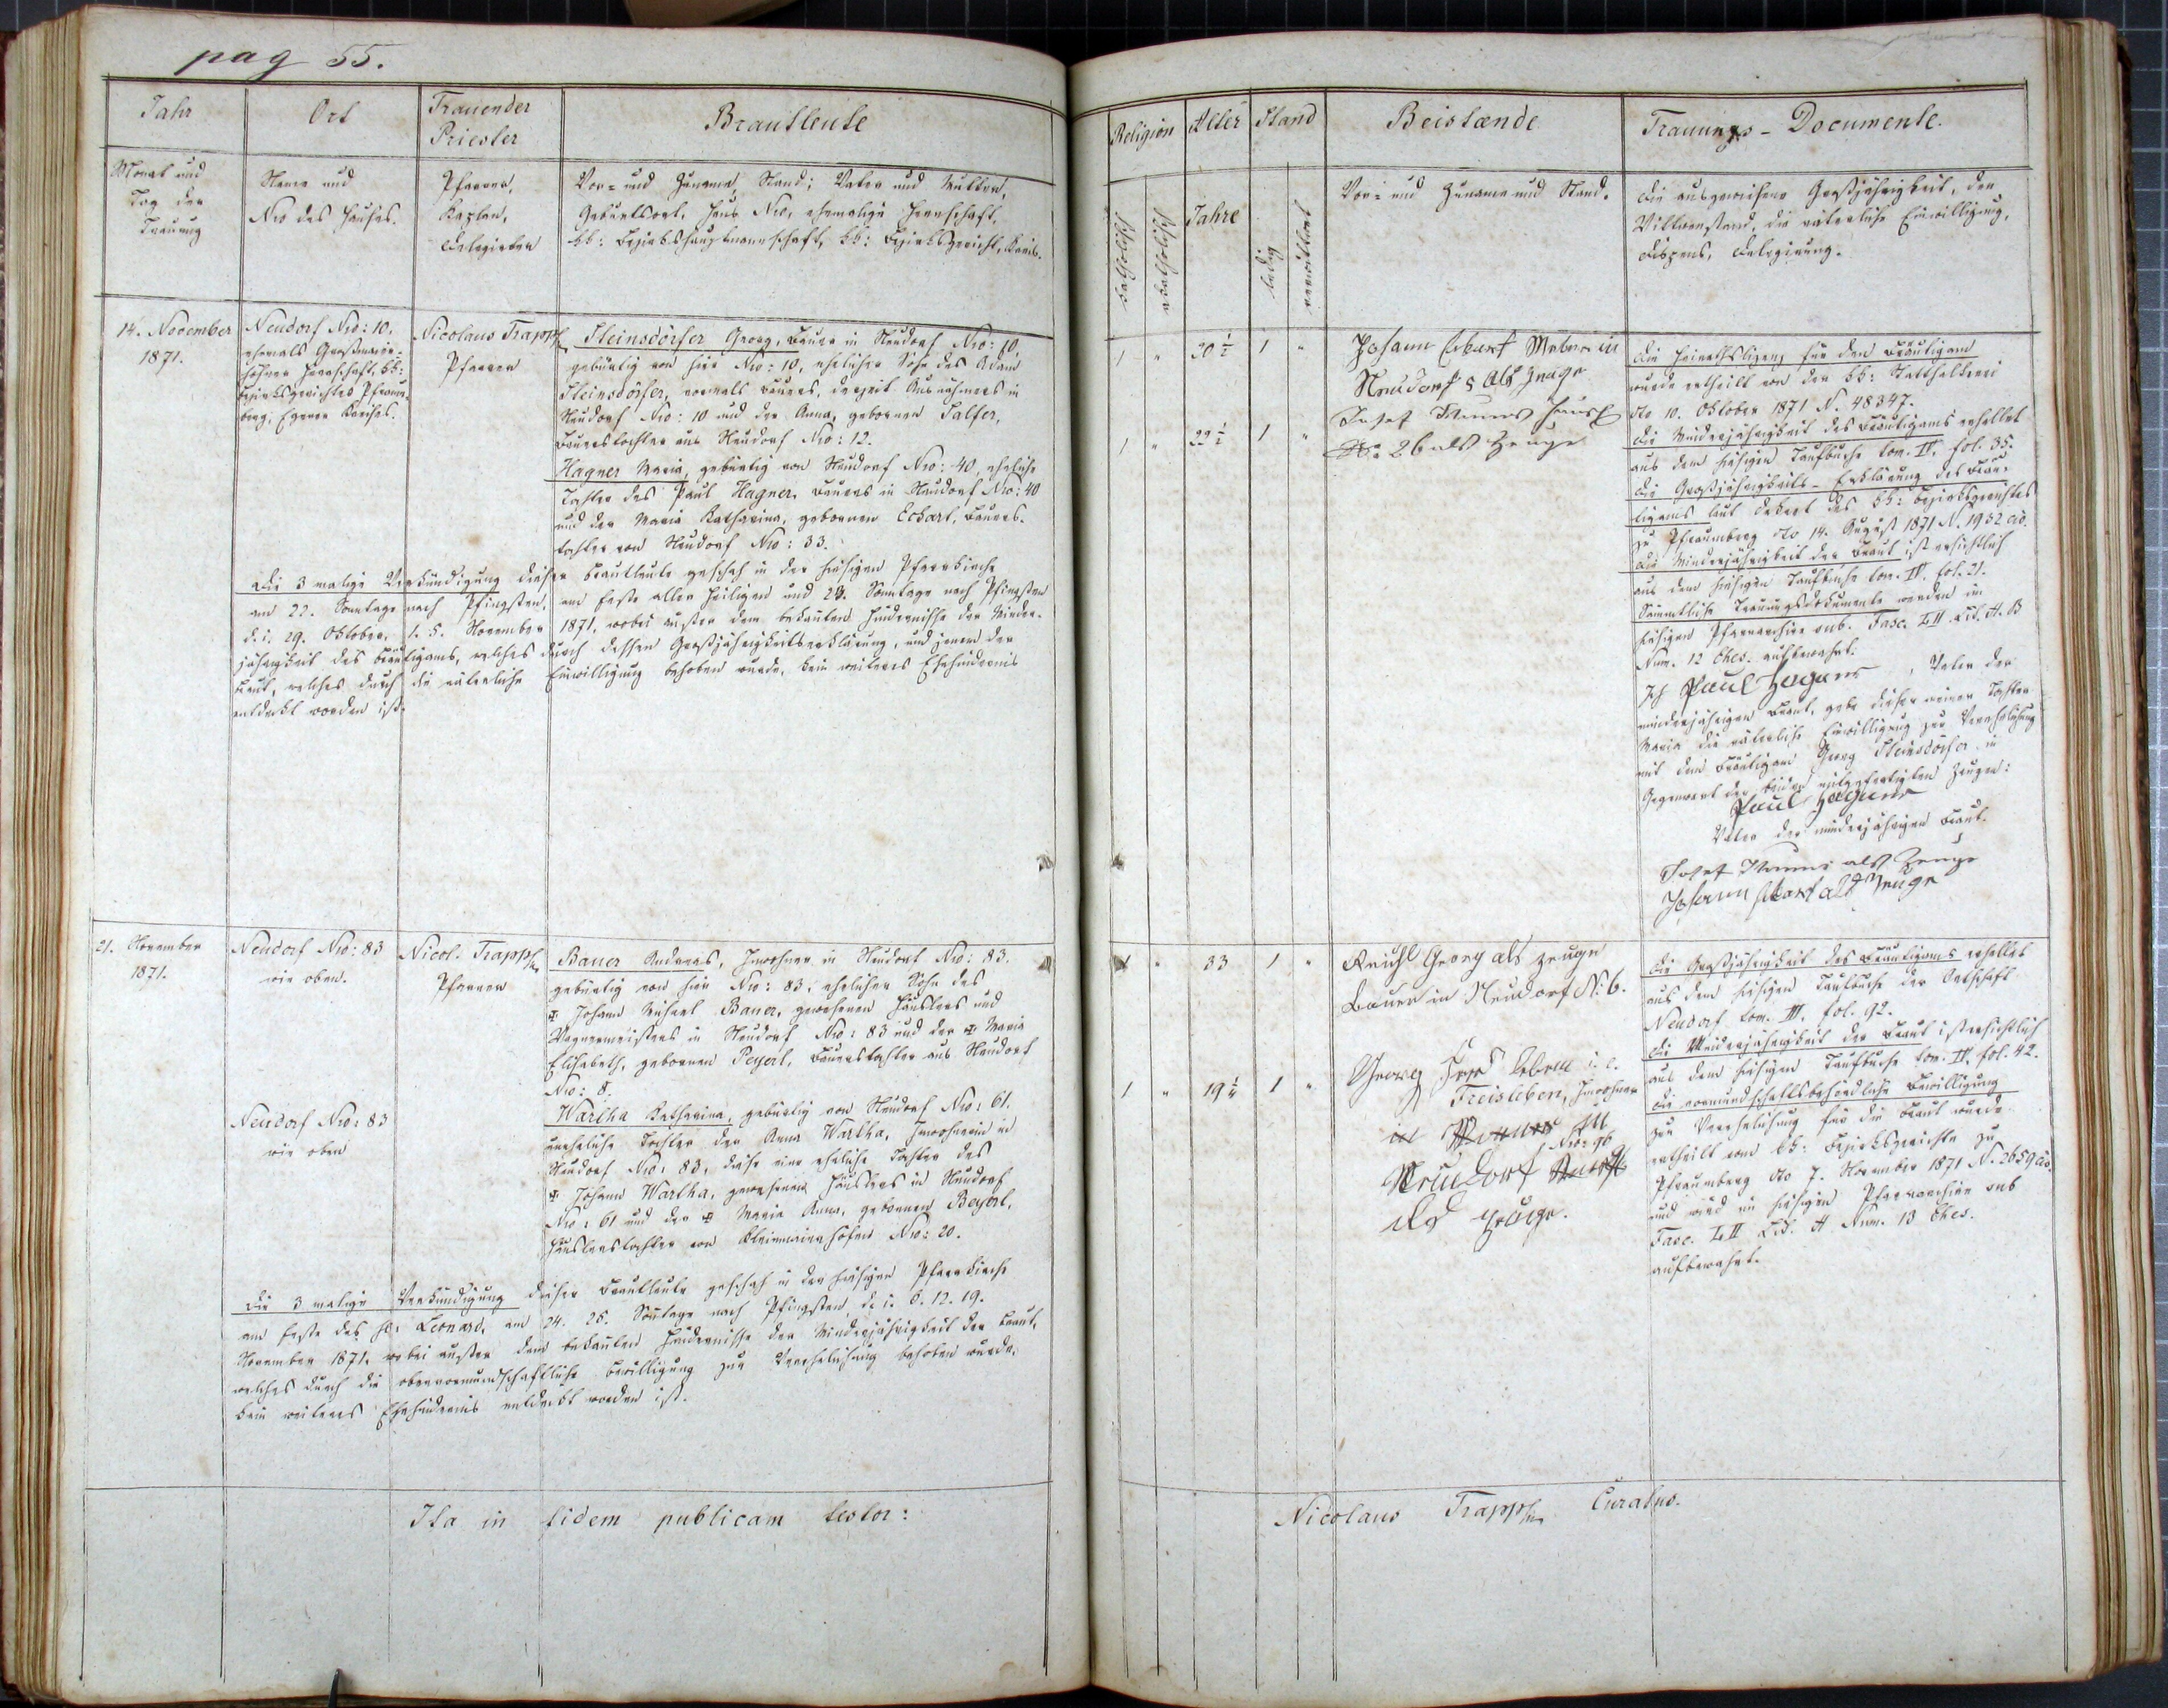 pag 55.
Jahr
Ort
Trauender
Priester
Brautleute
Monat und
Tag der
Trauung
Name und
Nro des Hauses.
Pfarrer,
Kaplan,
Delegirter
Vor- und Zuname, Stand; Vater und Mutter,
Geburtsort, Haus Nro, ehemalige Herrschaft,
kk: Bezirkshauptmannschaft, kk: Bezirksgericht, Kreis.
14. November
1871.
Neudorf Nro: 10.
ehemals
Herrschaft, kk:
Bezirksgerichtes Pfraum-
berg, Egerer Kreises.
Nicolaus Trapp
Pfarrer
Steinsdörfer Georg, Bauer in Neudorf Nro: 10,
gebürtig von hier Nro: 10, ehelicher Sohn des Adam
Steinsdörfer, vormals Bauers, derzeit Ausnehmers in
Neudorf Nro: 10 und der Anna, gebornen Salfer,
Bauerstochter aus Neudorf Nro: 12.
Hagner Maria, gebürtig von Neudorf Nro: 40, eheliche
Tochter des Paul Hagner, Bauers in Neudorf Nro: 40
und der Maria Katharina, gebornen Eckart, Bauers-
tochter von Neudorf Nro: 33.
Die 3 malige Verkündigung dieser Brautleute geschah in der hiesigen Pfarrkirche
am 22. Sonntage nach Pfingsten, am Feste aller Heiligen und 23. Sonntage nach Pfingsten
d. i. 29. Oktober, 1. 5. November 1871, wobei außer dem bekannten Hindernisse der Minder-
jährigkeit des Bräutigams, welches durch dessen Großjährigkeitserklärung, und jenem der
Braut, welches durch die väterliche Einwilligung behoben wurde, kein weiteres Ehehinderniß
entdeckt worden ist.
21. November
1871.
Neudorf Nro: 83
wie oben.
Nicol. Trapp
Pfarrer
Bauer Andreas, Inwohner in Neudorf Nro: 83.
gebürtig von hier Nro: 83, ehelicher Sohn des
Johann Michael Bauer, gewesenen Häuslers und
Wagnermeisters in Neudorf Nro: 83 und der Maria
Elisabeth, gebornen Peyerl, Bauerstochter aus Neudorf
Nro: 8.
Neudorf Nro: 83
wie oben
Wartha Katharina, gebürtig von Neudorf Nro: 61.
uneheliche Tochter der Anna Wartha, Inwohnerin in
Neudorf Nro: 83, diese eine eheliche Tochter des
Johann Wartha, gewesenen Häuslers in Neudorf
Nro: 61 und der Maria Anna, gebornen Beyerl,
Häuslerstochter von Kleinmaierhöfen Nro: 20.
Die 3 malige Verkündigung dieser Brautleute geschah in der hiesigen Pfarrkirche
am Feste des hl. Leonard, am 24. 25. Sonntage nach Pfingsten, d. i. 6. 12. 19.
November 1871. wobei außer dem bekannten Hindernisse der Minderjährigkeit der Braut,
welches durch die obervormundschaftliche Bewilligung zur Verehelichung behoben wurde,
kein weiteres Ehehinderniß entdeckt worden ist.
Ita in fidem publicam testor:
Religion
Alter
Stand
Beistände
Trauungs-Documente.
katholisch
akatholisch
Jahre
ledig
verwittwet
Vor- und Zuname und Stand.
Die ausgewiesene Großjährigkeit, der
Wittwenstand, die väterliche Einwilligung,
Dispens, Delegirung.
1 " 20 1/2 1 "
Johann Eckart Weber in
Neudorf 5 als Zeuge
1 " 22 1/2 1 "
Josef
26 als Zeuge
Die Heirathslizenz für den Bräutigam
wurde ertheilt von der kk: Statthalterei
dto 10. Oktober 1871 N. 48347.
Die Minderjährigkeit des Bräutigams erhellet
aus dem hiesigen Taufbuche tom. IV. fol. 35.
Die Großjährigkeits-Erklärung des Bräu-
tigams laut Dekret des kk: Bezirksgerichtes
zu Pfraumberg dto 14. August 1871 N. 1932 civ.
Die Minderjährigkeit der Braut ist ersichtlich
aus dem hiesigen Taufbuche tom. IV. fol. 21.
Sämmtliche Trauungsdokumente werden im
hiesigen Pfarrarchive sub. Fasc. LII Lit. A. B
Num. 12 Ehes. aufbewahrt.
Ich Paul Hagner, Vater der
minderjährigen Braut, gebe dieser meiner Tochter
Maria die väterliche Einwilligung zur Verehelichung
mit dem Bräutigam Georg Steinsdörfer in
Gegenwart der beiden mitgefertigten Zeugen:
Paul Hagner
Vater der minderjährigen Braut.
Josef als Zeuge
Johann Eckart als Zeuge
1 " 33 1 "
Reichl Georg als Zeuge
Bauer in Neudorf N: 6.
Die Großjährigkeit des Bräutigams erhellet
aus dem hiesigen Taufbuche der Ortschaft
Neudorf tom. III. fol. 92.
Die Minderjährigkeit der Braut ist ersichtlich
aus dem hiesigen Taufbuche tom. IV. fol. 42.
Die vormundschaftsbehördliche Bewilligung
zur Verehelichung für die Braut wurde
ertheilt vom kk: Bezirksgerichte zu
Pfraumberg dto 7. November 1871 N. 2659 civ.
und wird im hiesigen Pfarrarchive sub
Fasc. LII Lit. A Num. 13 Ehes.
aufbewahrt.
1 " 19 1/4 1 "
Georg
Freisleben, Inwohner
in
Nro: 96
Neudorf
als Zeuge.
Nicolaus Trapp Curatus.